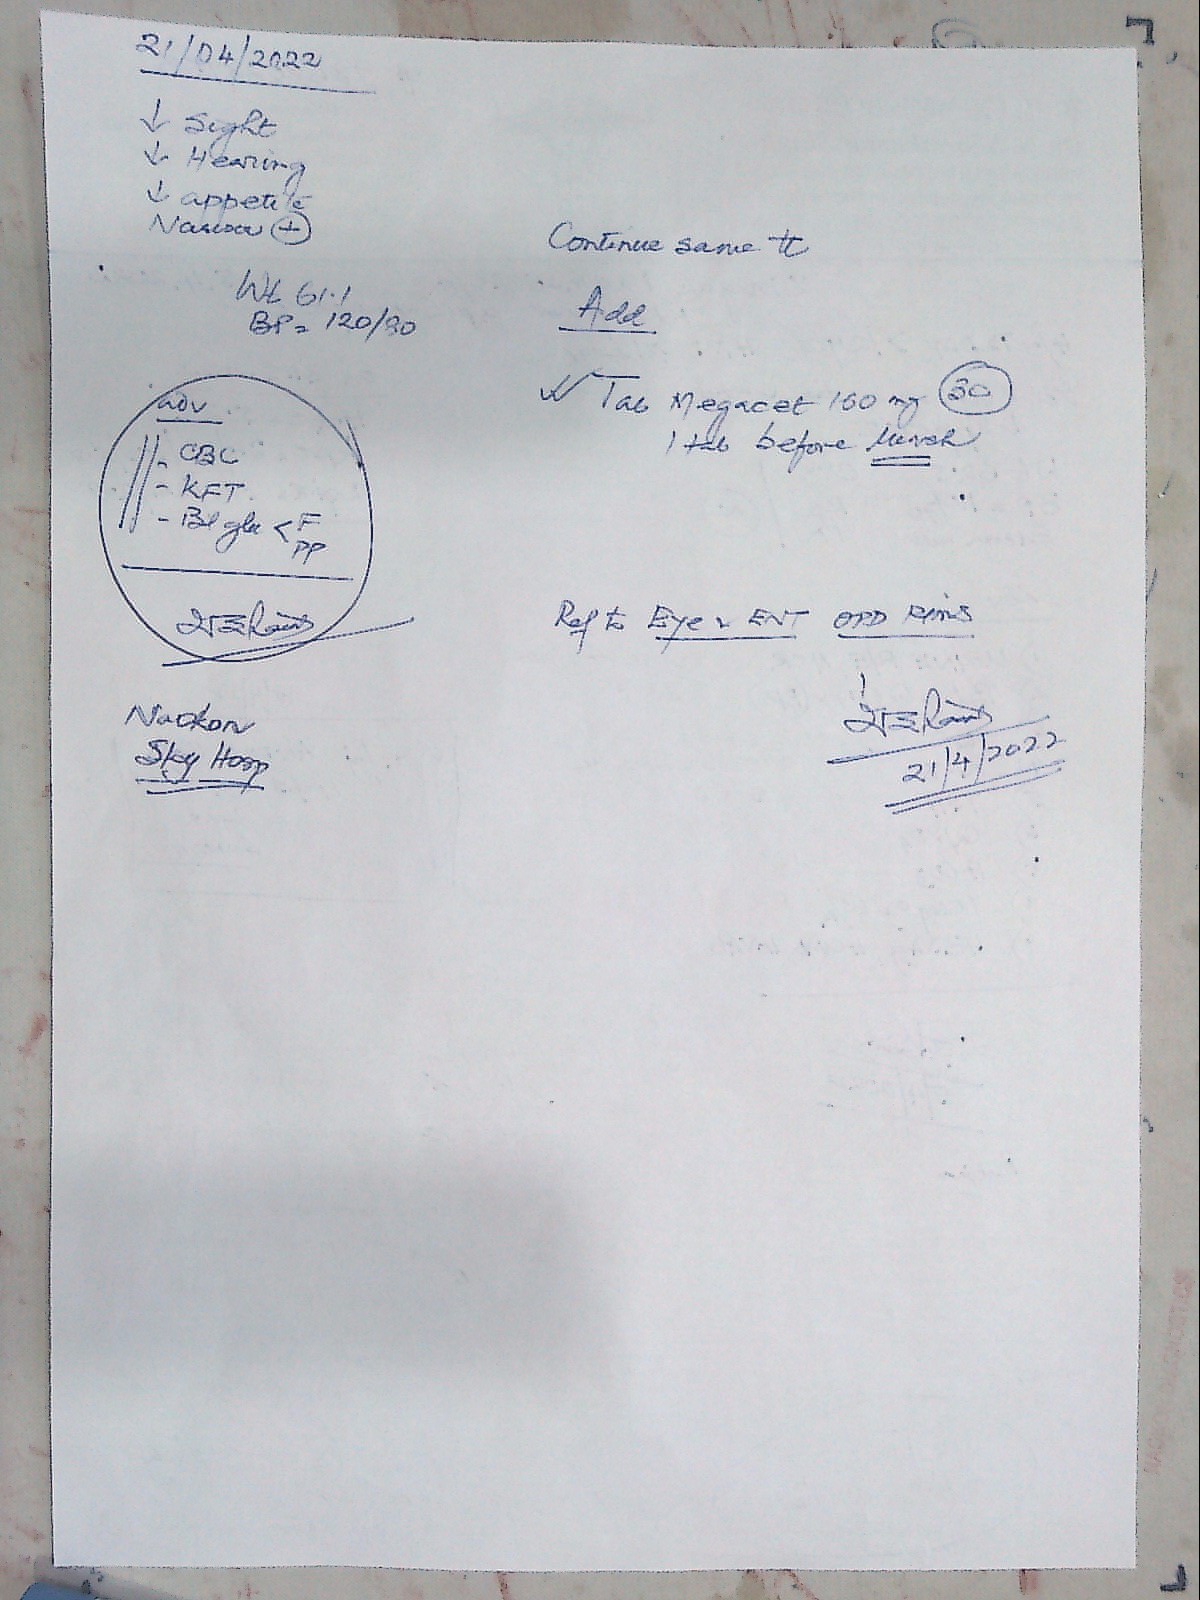 21/04/2022
↓ Sight
↓ Hearing
↓ appetite
Nausea (+)
Wt 61.1
BP = 120/80
adv
- CBC
- KFT
- Bl glu < F
PP
Sky Hosp
Continue same tt
Add
Tab Megacet 160 mg (30)
1 tab before lunch
Ref to Eye & ENT OPD RIMS
21/4/2022